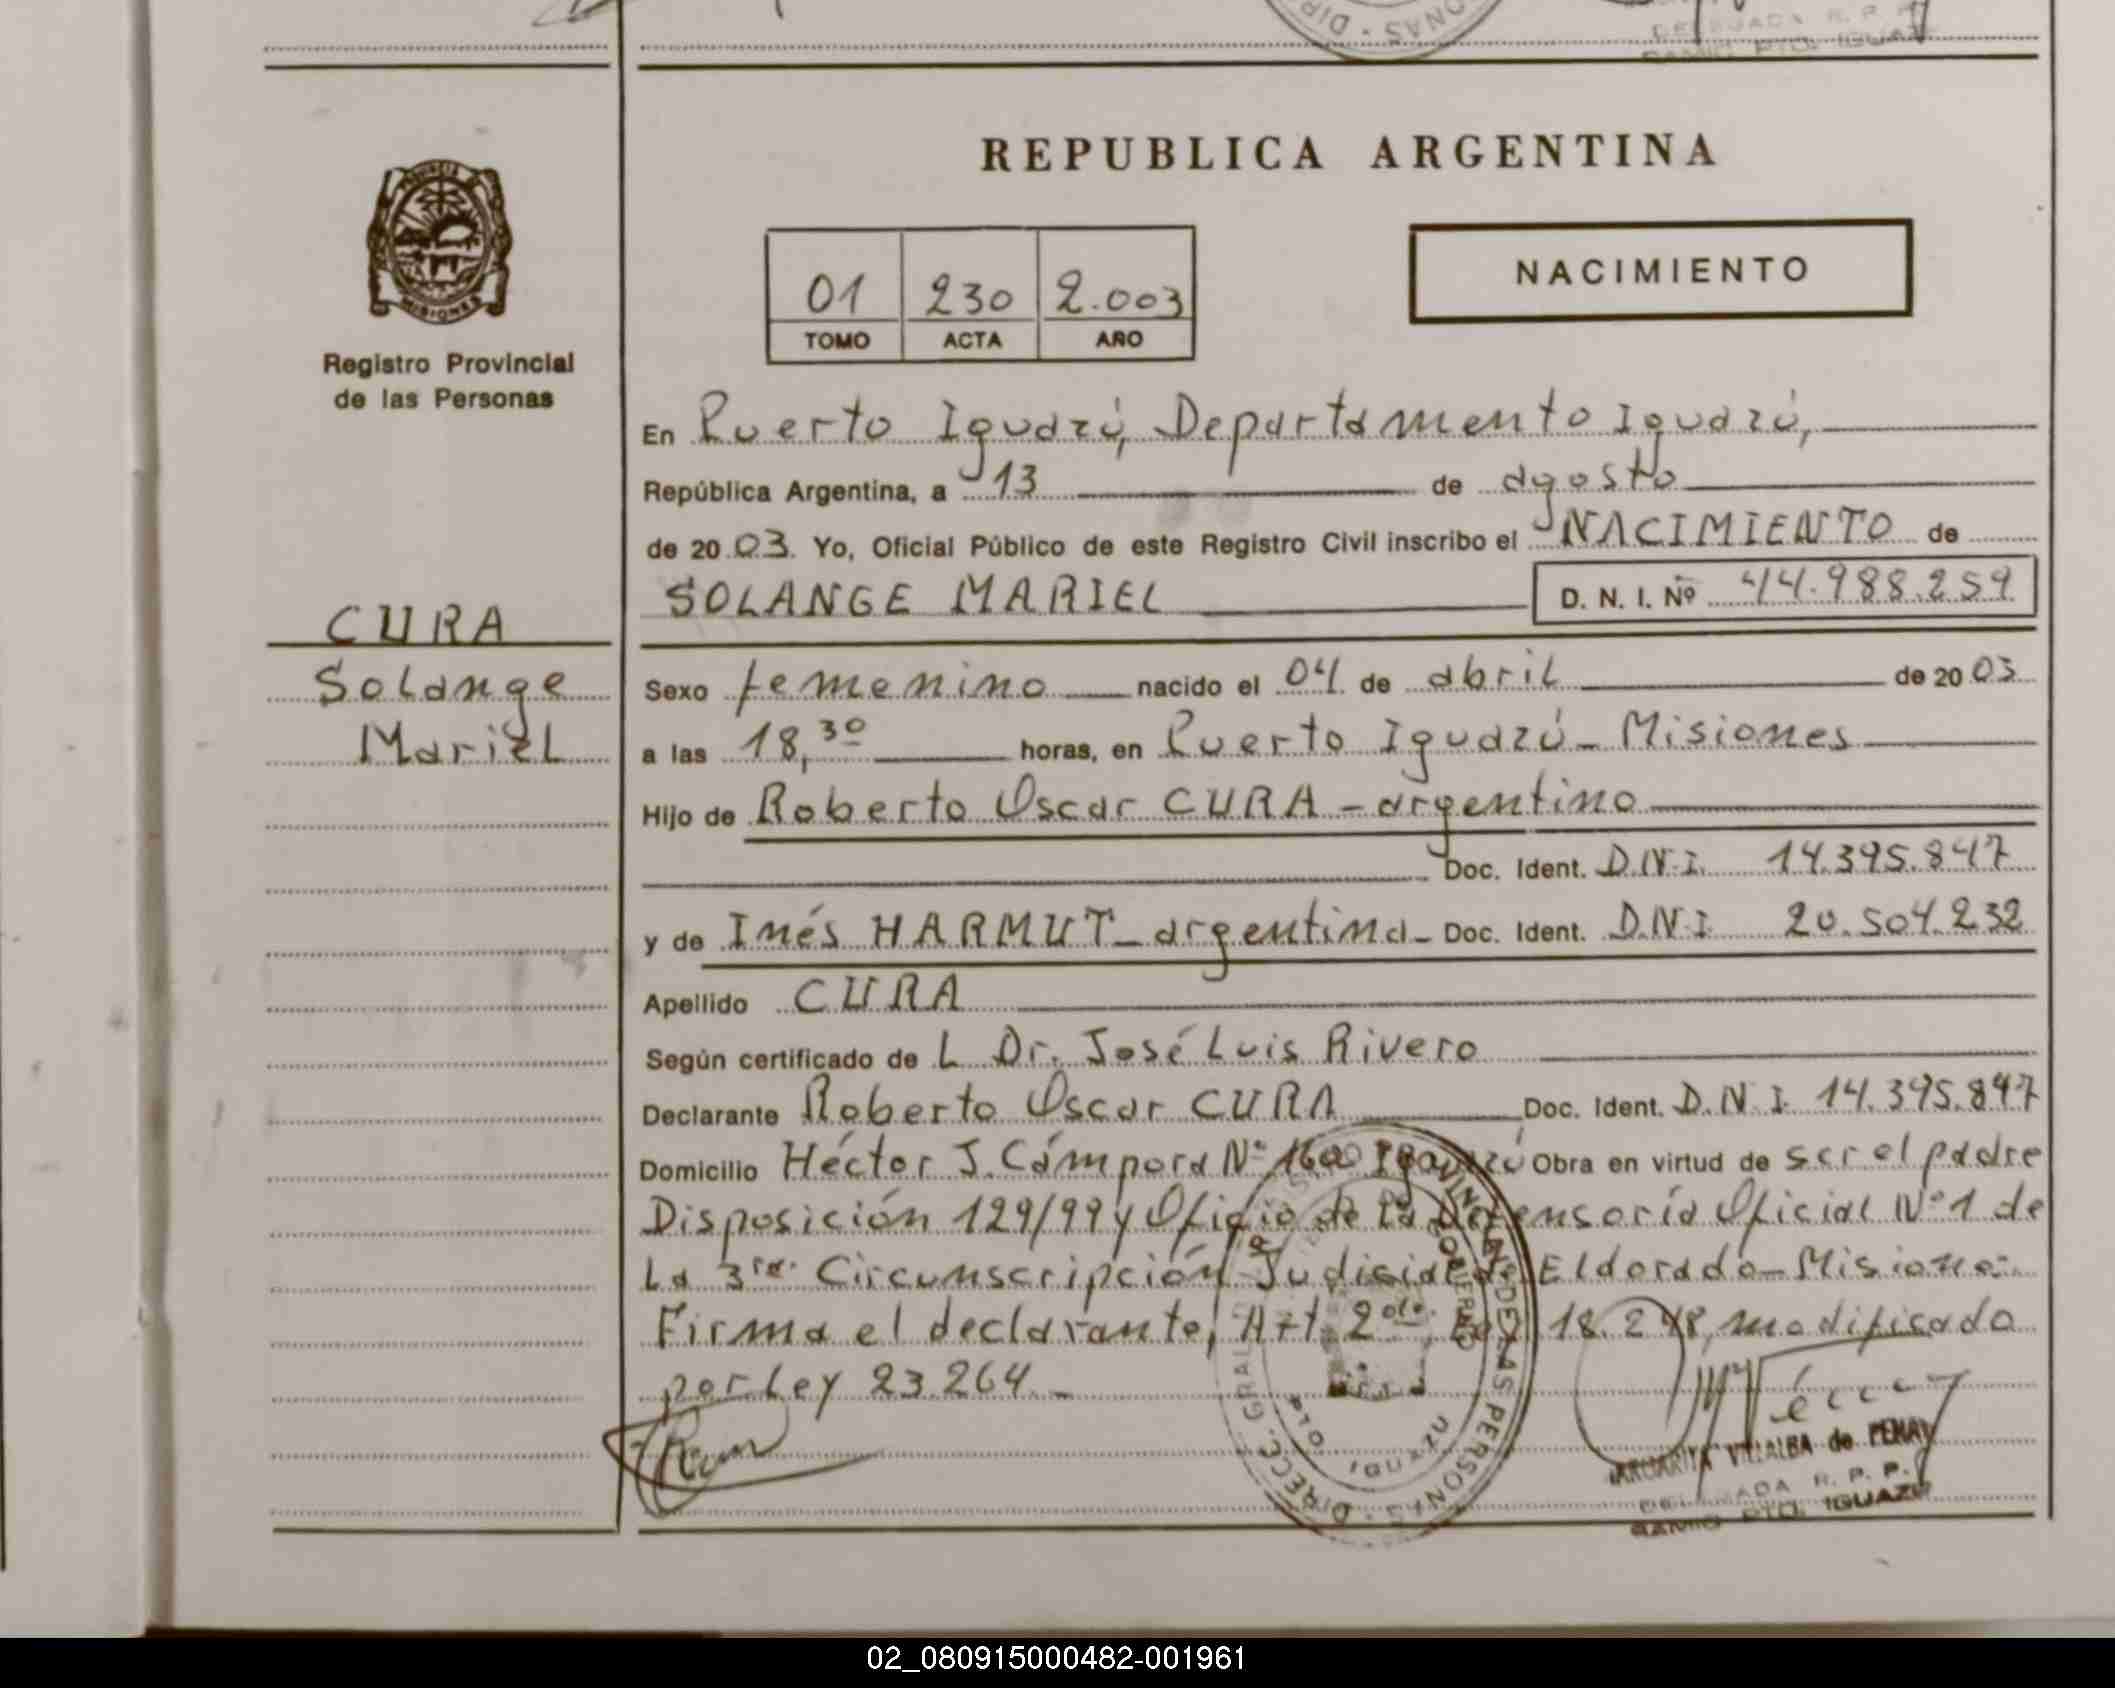 REPUBLICA ARGENTINA
NACIMIENTO
01 230 2.003
TOMO ACTA AÑO
Registro Provincial
de las Personas
En Puerto Iguazú, Departamento Iguazú,
República Argentina, a 13 de agosto
de 2003. Yo, Oficial Público de este Registro Civil inscribo el NACIMIENTO de
SOLANGE MARIEL D. N. I. Nº 44.988.259
CURA
Solange
Mariel
Sexo femenino nacido el 04 de abril de 2003
a las 18,30 horas, en Puerto Iguazú - Misiones
Hijo de Roberto Oscar CURA - argentino
Doc. Ident. D.N.I. 14.395.847
y de Inés HARMUT - argentina - Doc. Ident. D.N.I. 20.504.232
Apellido CURA
Según certificado de L Dr. José Luis Rivero
Declarante Roberto Oscar CURA Doc. Ident. D.N.I. 14.395.847
Domicilio Héctor J. Cámpora Nº Obra en virtud de ser el padre
Disposición 129/99 y Oficio de la Defensoría Oficial Nº 1 de
la 3ra. Circunscripción Judicial de Eldorado - Misiones
Firma el declarante, Art. 2do. Ley 18.248, modificada
por Ley 23.264. -
MARGARITA VILLALBA de
DELEGADA R. P. P.
PTO. IGUAZU
02_080915000482-001961